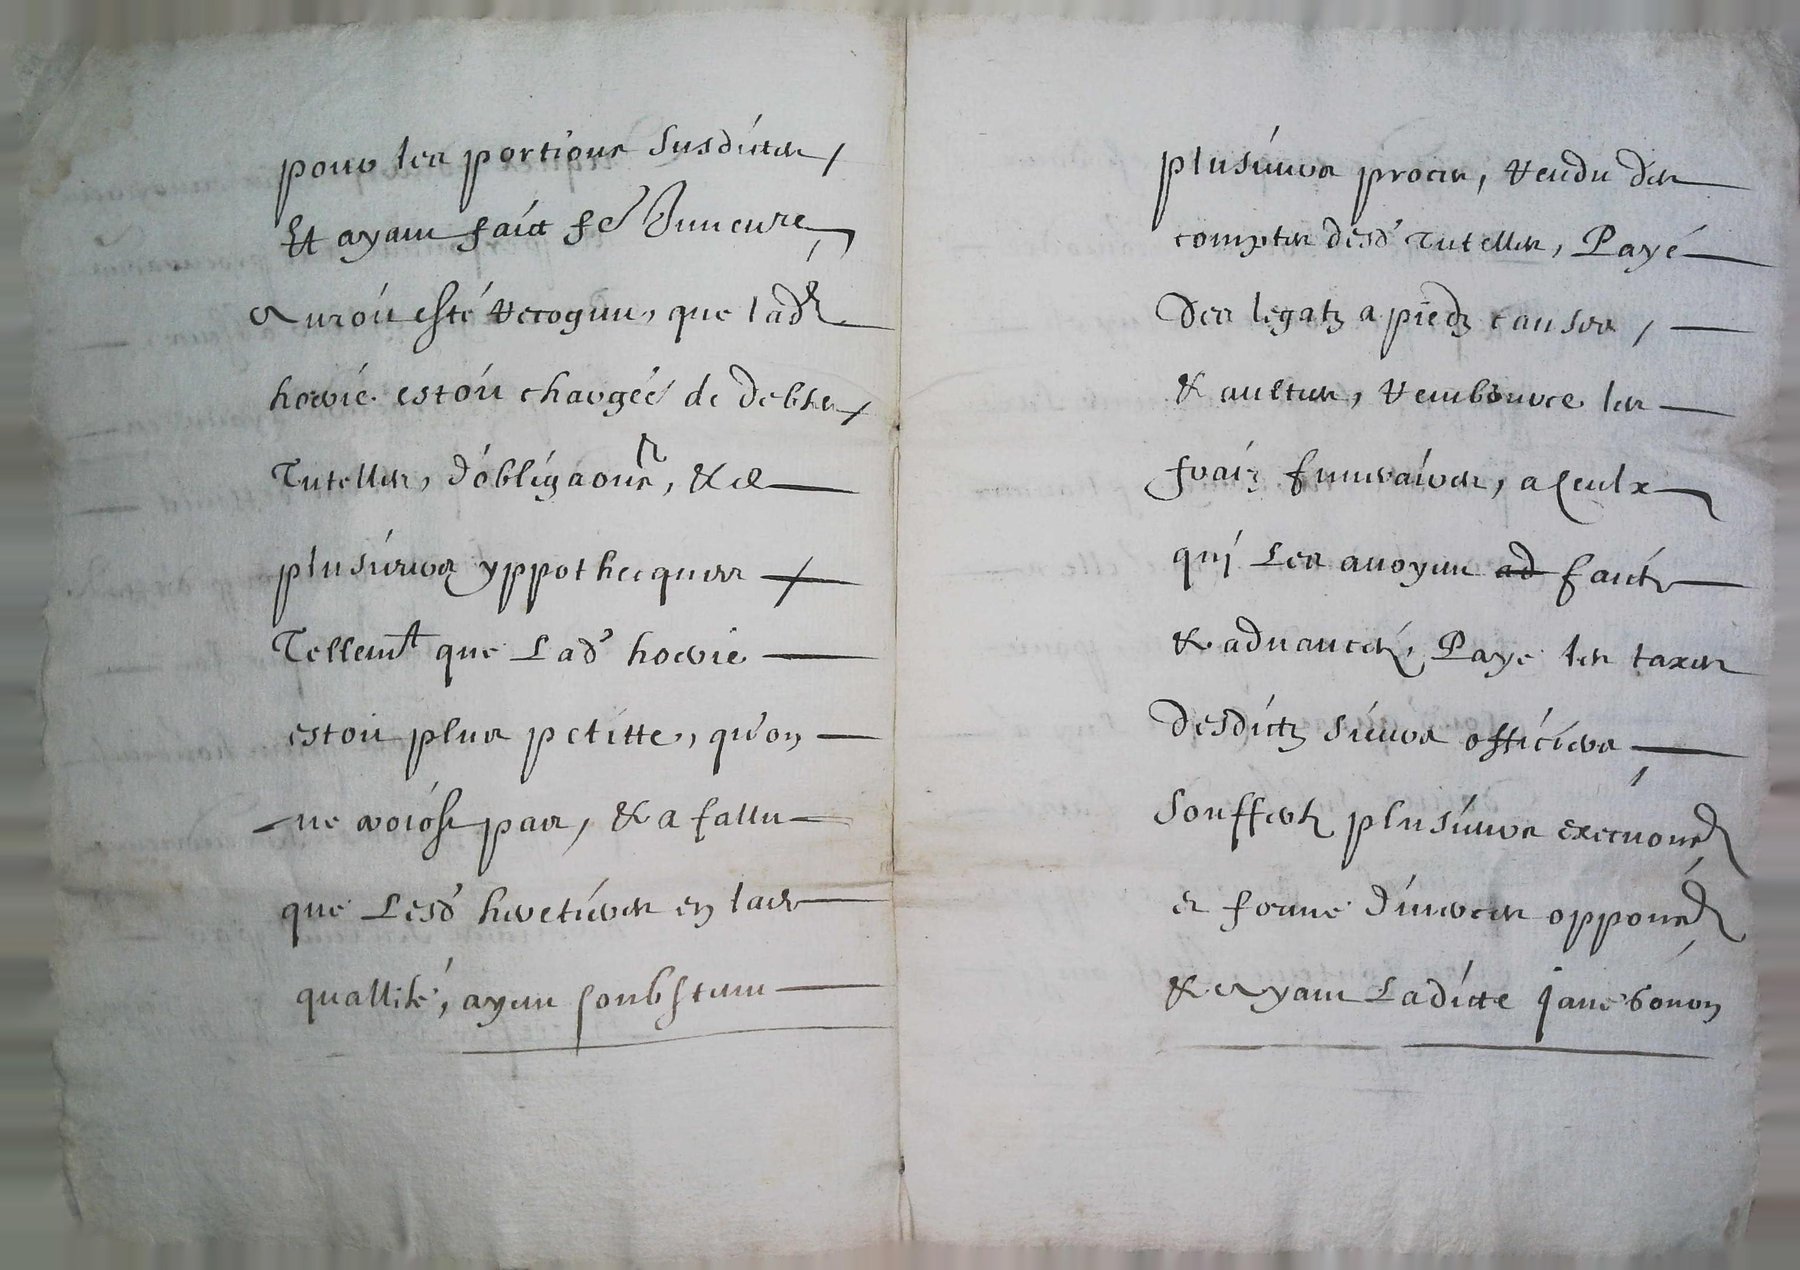 pour les portions susdictes,
Et ayant faict fe Inventre,
auroit esté recognu, que lad.
hoerie estoit chargée de debtes,
Tutelles, d'obligaons, & de
plusieurs yppothecques
Tellemt que Lad. hoerie
estoit plus petitte, qu'on
ne croiost pas, & a fallu
que Lesd. heretiers en lade
quallité, ayent soubstenu
plusieurs proces, rendu des
comptes desd. Tutelles, Payé
des legatz a piedz causes,
& aultres, rembource les
fraiz funeraires, a ceulx
quj Les avoyent faictz
& advancez, Paye les taxes
desdictz sieurs officiers
souffertz plusieurs execuons
et forme diverces oppons
& ayant Ladicte jane bouon